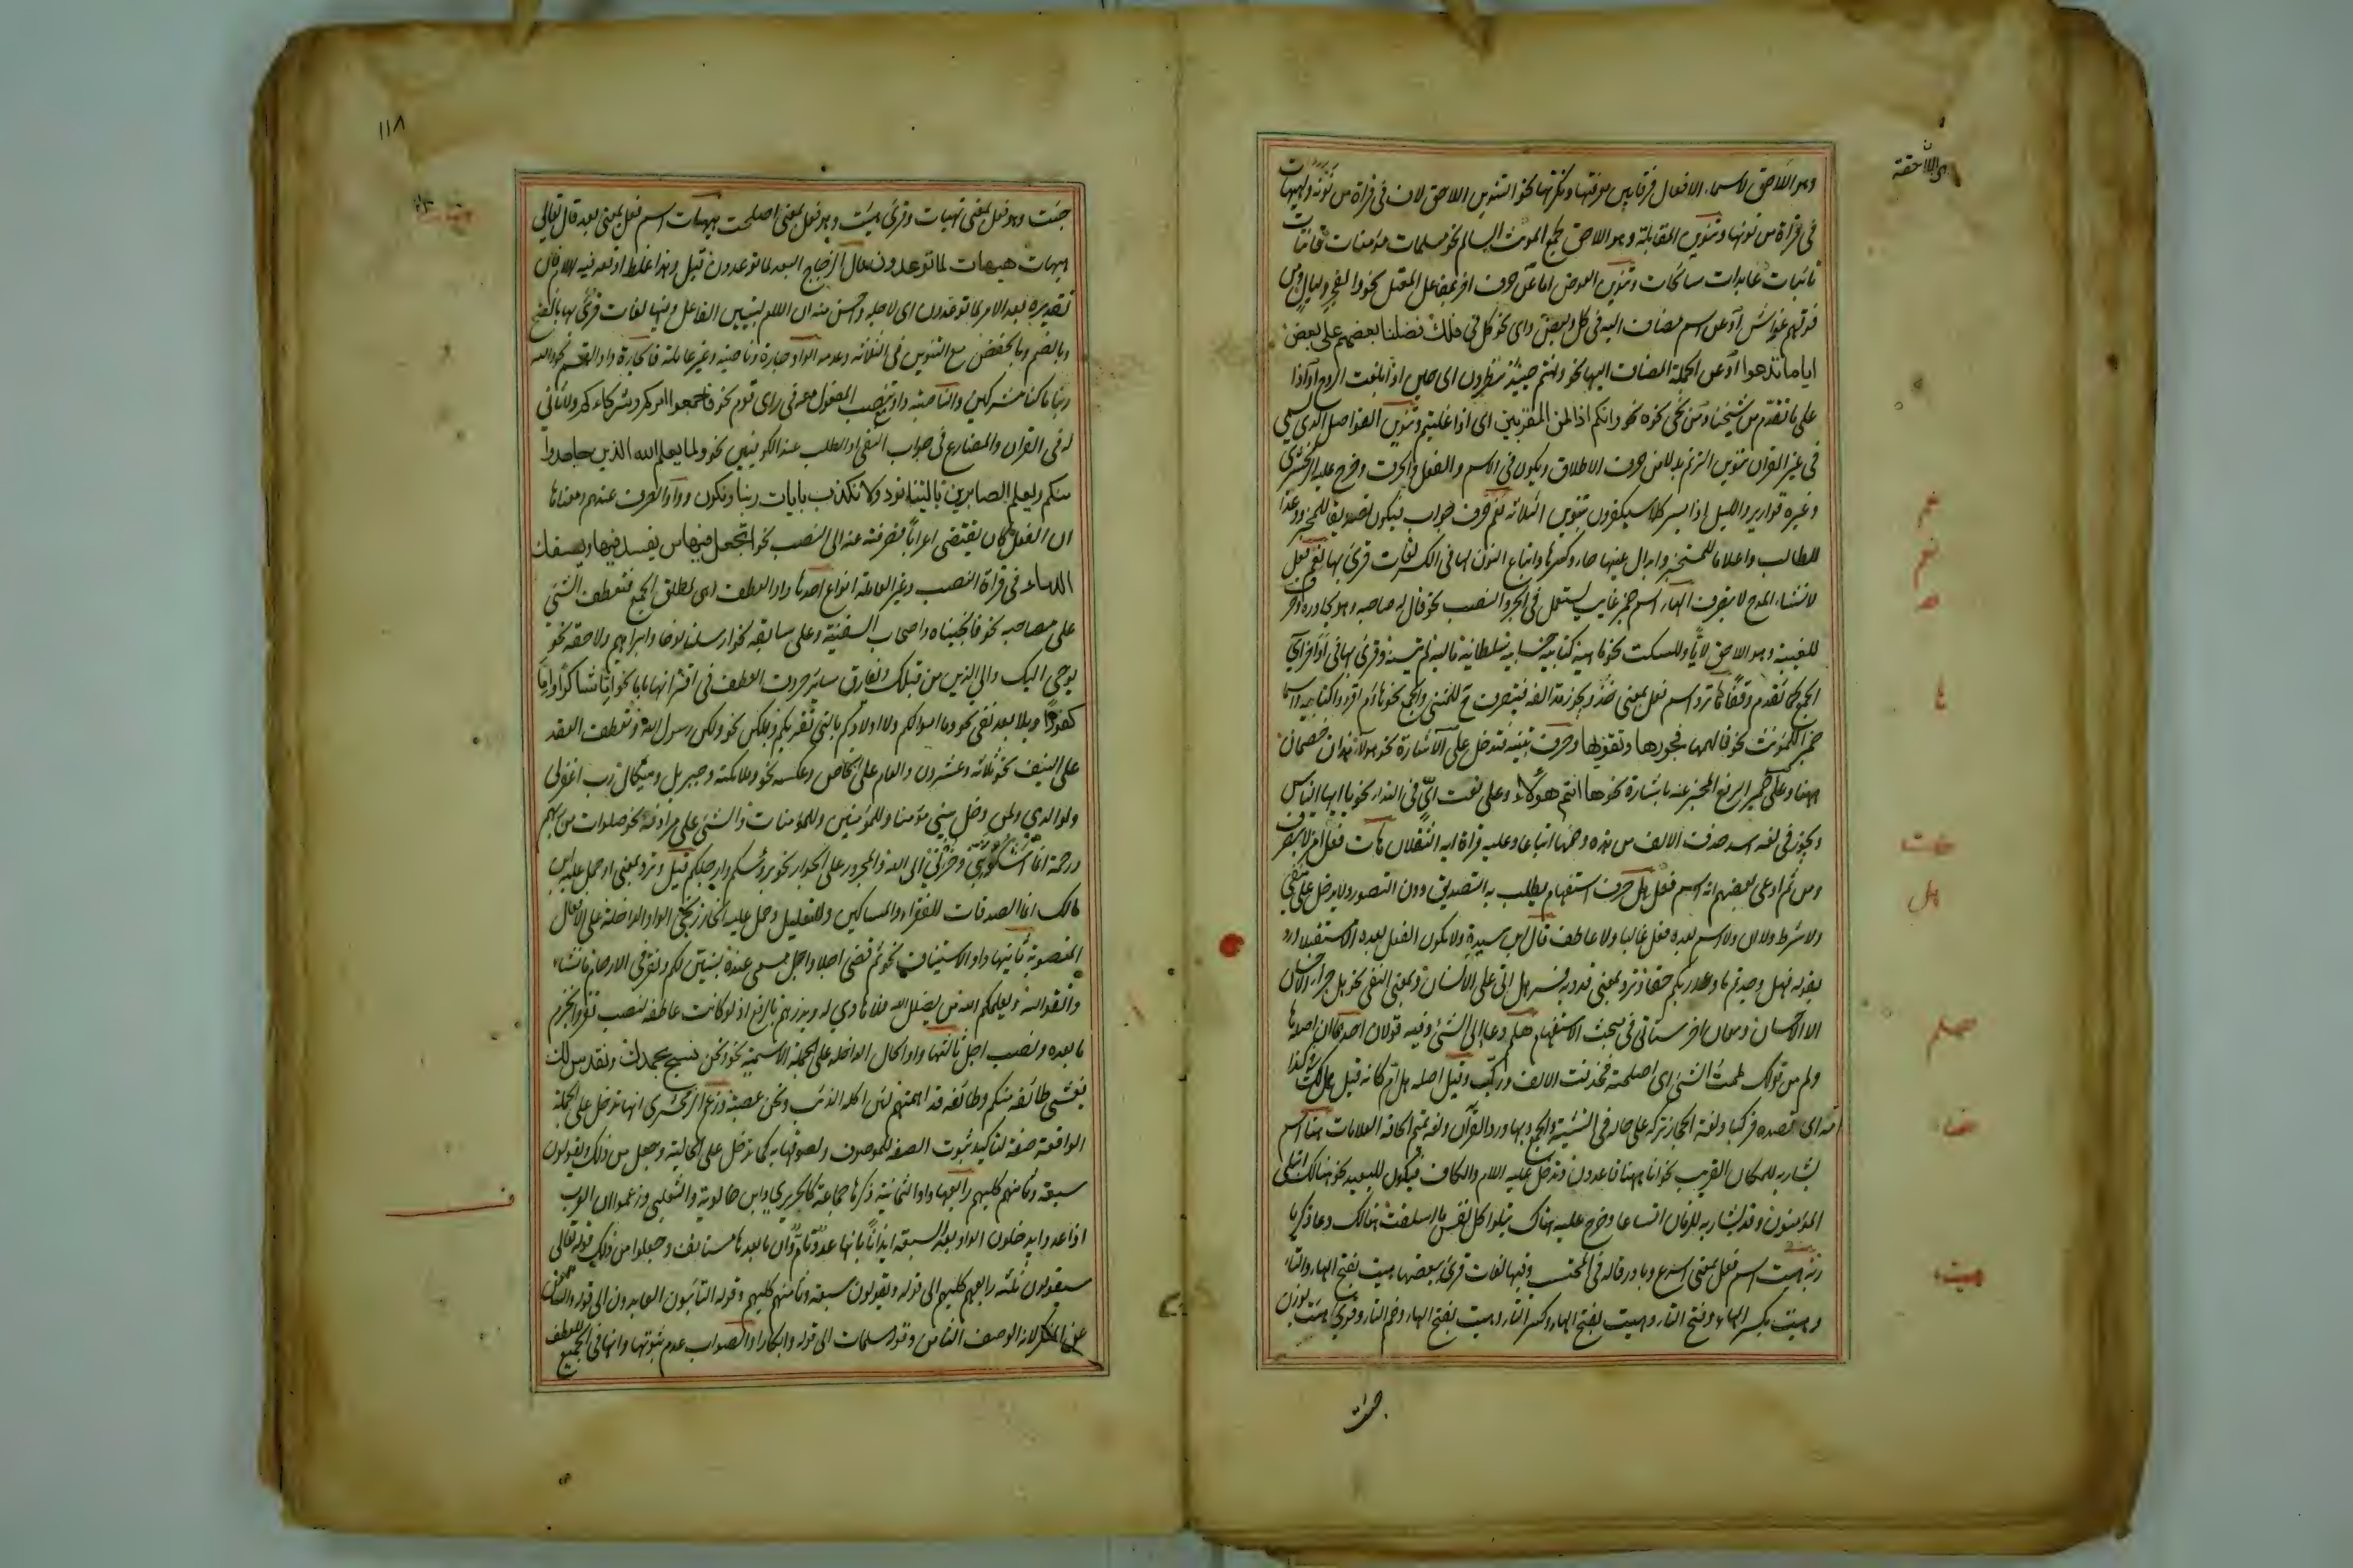 وهو اللاحق لاسماء الافعال فرقا بين معرفتها ونكرتها نحو التنوين اللاحق لاف في قراة من نونه وهيهات
في قراة من نونها وتنوين المقابلة وهو اللاحق لجمع المونث السالم نحو مسلمات مؤمنات قانتات
تائبات عابدات سائحات وتنوين العوض اما عن حرف اخر مفاعل المعتل نحو والفجر وليال ومن
فوقهم غواش او عن اسم مضاف اليه في كل وبعض واى نحو كل في فلك فضلنا بعضهم على بعض
اياما تدعوا او عن الجملة المضاف اليها نحو وانتم حينئذ تنظرون اى حين اذ بلغت الروح او اذا
على ما تقدم من شيخنا ومن نحى نحوه نحو وانكم اذا لمن المقربين اى اذا غلبتم وتنوين الفواصل الذي يسمى
في غير القران تنوين الترنم بدلا من حرف الاطلاق ويكون في الاسم والفعل والحرف وخرج عليه الزمخشري
وغيره قواريرا والليل اذا يسر كلا سيكفرون بتنوين الثلاثة نعم حرف جواب فيكون تصديقا للمخبر ووعدا
للطالب واعلاما للمستخبر وابدال عينها حاء وكسرها واتباع النون لها في الكسر لغات قرئ بها نعم فعل
لانشاء المدح لا يتصرف الهاء اسم ضمير غايب يستعمل في الجر والنصب نحو قال له صاحبه وهو يحاوره وحرف
للغيبة وهو اللاحق لايا وللسكت نحو ماهيه كتابيه حسابيه سلطانيه ماليه لم يتسنه وقرئ بها في اواخر اى
الجمع كما تقدم وقفا ها ترد اسم فعل بمعنى خذ ويجوز مد الفه فيتصرف ح للمثنى والجمع نحو هاؤم اقرؤا كتابيه واسما
ضميرا للمونث نحو فالهمها فجورها وتقويها وحرف تنبيه فتدخل على الاشارة نحو هؤلاء هذان خصمان
ههنا وعلى ضمير الرفع المخبر عنه باشارة نحو ها انتم هؤلاء وعلى نعت اىّ في النداء نحو يا ايها الناس
ويجوز في لغة اسد حذف الالف من هذه وضمها اتباعا وعليه قراة ايه الثقلان هات فعل امر لا يتصرف
ومن ثم ادعى بعضهم انه اسم فعل هل حرف استفهام يطلب به التصديق دون التصور ولا يدخل على منفي
ولا شرط ولا ان ولا اسم بعده فعل غالبا ولا عاطف قال ابن سيدة ولا يكون الفعل بعده الا مستقبلا ورد
بقوله فهل وجدتم ما وعد ربكم حقا وترد بمعنى قد وبه فسر هل اتى على الانسان وبمعنى النفي نحو هل جزاء الاحسان
الا الاحسان ومعان اخر ستاتي في مبحث الاستفهام هلم دعا الى الشئ وفيه قولان احدهما ان اصله ها
ولم من قولك لممت الشئ اى اصلحته فحذفت الالف وركب وقيل اصله هل ام كانه قيل هل لك في كذا
امه اى اقصده فركبا ولغة الحجاز تركه على حاله في التثنية والجمع وبها ورد القرآن ولغة تميم الحاقه العلامات هنا اسم
يشار به للمكان القريب نحو انا ههنا قاعدون وتدخل عليه اللام والكاف فيكون للبعيد نحو هنالك ابتلى
المؤمنون وقد يشار به للزمان اتساعا وخرج عليه هناك تبلوا كل نفس ما اسلفت هنالك دعا ذكريا
ربه هيت اسم فعل بمعنى اسرع وبادر قاله في المحتسب وفيها لغات قرئ ببعضها هيت بفتح الهاء والتاء
وهيت بكسر الهاء وفتح التاء وهيت بفتح الهاء وكسر التاء وهيت بفتح الهاء وضم التاء وقرئ هئت بوزن
جئت
اى اللاحقة
نعم
ه
ها
هات
هل
هلم
هنا
هيت
١١٨
جئت وهو فعل بمعنى تهيات وقرئ هيئت وهو فعل بمعنى اصلحت هيهات اسم فعل بمعنى بعد قال تعالى
هيهات هيهات لما توعدون قال الزجاج البعد لما توعدون قيل وهذا غلط اوقعه فيه اللام فان
تقديره بعد الامر لما توعدون اى لاجله واحسن منه ان اللام لتبيين الفاعل وفيها لغات قرئ بها بالفتح
وبالضم وبالخفض مع التنوين في الثلاثة وعدمه الواو جارة وناصبة وغير عاملة فالجارة واو القسم نحو والله
ربنا ما كنا مشركين والناصبة واو مع تنصب المفعول معه في راى قوم نحو فاجمعوا امركم وشركاءكم ولا ثاني
له في القران والمضارع في جواب النفي او الطلب عند الكوفيين نحو ولما يعلم الله الذين جاهدوا
منكم ويعلم الصابرين يا ليتنا نرد ولا نكذب بايات ربنا ونكون وواو الصرف عندهم ومعناها
ان الفعل كان يقتضى اعرابا فصرفته عنه الى النصب نحو اتجعل فيها من يفسد فيها ويسفك
الدماء في قراة النصب وغير العاملة انواع احدها واو العطف وهى لمطلق الجمع فتعطف الشئ
على مصاحبه نحو فانجيناه واصحاب السفينة وعلى سابقه نحو ارسلنا نوحا وابراهيم ولاحقه نحو
يوحى اليك والى الذين من قبلك وتفارق سائر حروف العطف في اقترانها باما نحو اما شاكرا واما
كفورا وبلا بعد نفي نحو وما اموالكم ولا اولادكم بالتي تقربكم وبلكن نحو ولكن رسول الله وتعطف العقد
على النيف نحو ثلاثة وعشرون والعام على الخاص وعكسه نحو وملائكته وجبريل وميكال رب اغفرلى
ولوالدي ولمن دخل بيتي مؤمنا وللمؤمنين وللمؤمنات والشئ على مرادفه نحو صلوات من ربهم
ورحمة انما اشكو بثي وحزني الى الله والمجرور على الجوار نحو برؤسكم وارجلكم قيل وترد بمعنى او حمل عليه ابن
مالك انما الصدقات للفقراء والمساكين وللتعليل وحمل عليه الخارزنجي الواو الداخلة على الافعال
المنصوبة ثانيها واو الاستيناف نحو ثم قضى اجلا واجل مسمى عنده لنبين لكم ونقر في الارحام ما نشاء
واتقوا الله ويعلمكم الله من يضلل الله فلا هادي له ويذرهم بالرفع اذ لو كانت عاطفة لنصب نقر وانجزم
ما بعده ونصب اجل ثالثها واو الحال الداخلة على الجملة الاسمية نحو ونحن نسبح بحمدك ونقدس لك
يغشى طائفة منكم وطائفة قد اهمتهم لئن اكله الذئب ونحن عصبة وزعم الزمخشرى انها تدخل على الجملة
الواقعة صفة لتاكيد ثبوت الصفة للموصوف ولصوقها به كما تدخل على الحالية وجعل من ذلك ويقولون
سبعة وثامنهم كلبهم رابعها واو الثمانية ذكرها جماعة كالحريري وابن خالويه والثعلبي وزعموا ان العرب
اذا عدوا يدخلون الواو بعد السبعة ايذانا بانها عدد تام وان ما بعدها مستانف وجعلوا من ذلك قوله تعالى
سيقولون ثلثة رابعهم كلبهم الى قوله ويقولون سبعة وثامنهم كلبهم وقوله التائبون العابدون الى قوله والناهون
عن المنكر لانه الوصف الثامن وقوله مسلمات الى قوله وابكارا والصواب عدم ثبوتها وانها في الجميع للعطف
هيهات